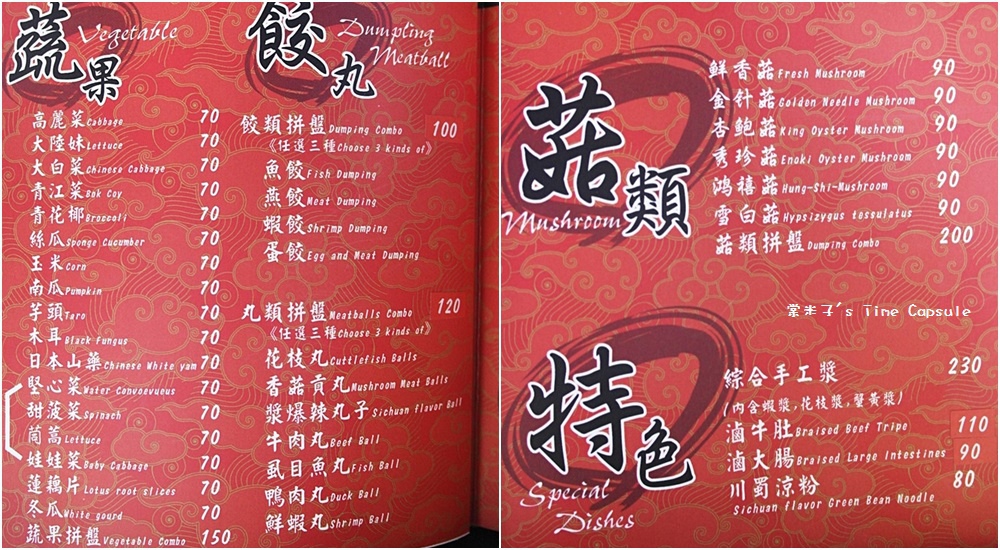 蔬果 Vegetable
高麗菜Cabbage 70
大陸妹Lettuce 70
大白菜Chinese Cabbage 70
青江菜Bok Coy 70
青花椰Broccoli 70
絲瓜Sponge Cucumber 70
玉米Corn 70
南瓜Pumpkin 70
芋頭Taro 70
木耳Black Fungus 70
日本山藥Chinese White yam 70
堅心菜Water Convoevueus 70
甜菠菜Spinach 70
茼蒿Lettuce 70
娃娃菜Baby Cabbage 70
蓮藕片Lotus root slices 70
冬瓜White gourd 70
蔬果拼盤Vegetable Combo 150
餃丸 Dumpling
Meatball
餃類拼盤Dumping Combo 100
《任選三種Choose 3 kinds of》
魚餃Fish Dumping
燕餃Meat Dumping
蝦餃Shrimp Dumping
蛋餃Egg and Meat Dumping
丸類拼盤Meatballs Combo 120
《任選三種Choose 3 kinds of》
花枝丸Cuttlefish Balls
香菇貢丸Mushroom Meat Balls
漿爆辣丸子Sichuan flavor Ball
牛肉丸Beef Ball
虱目魚丸Fish Ball
鴨肉丸Duck Ball
鮮蝦丸Shrimp Ball
菇類
Mushroom
鮮香菇Fresh Mushroom 90
金針菇Golden Needle Mushroom 90
杏鮑菇King Oyster Mushroom 90
秀珍菇Enoki Oyster Mushroom 90
鴻禧菇Hung-Shi-Mushroom 90
雪白菇Hypsizygus tessulatus 90
菇類拼盤Dumping Combo 200
掌半子's Time Capsule
特色
Special
Dishes
綜合手工漿 230
(內含蝦漿,花枝漿,蟹黃漿)
滷牛肚Braised Beef Tripe 110
滷大腸Braised Large Intestines 90
川蜀涼粉 80
Sichuan flavor Green Bean Noodle